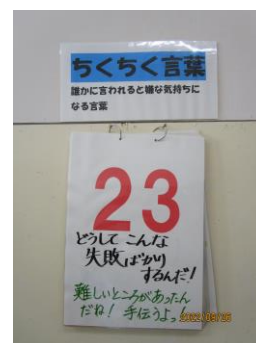 ちくちく言葉
誰かに言われると嫌な気持ちに
なる言葉
23
どうして こんな
失敗ばかり
するんだ!
難しいところがあったん
だね! 手伝うよっ!